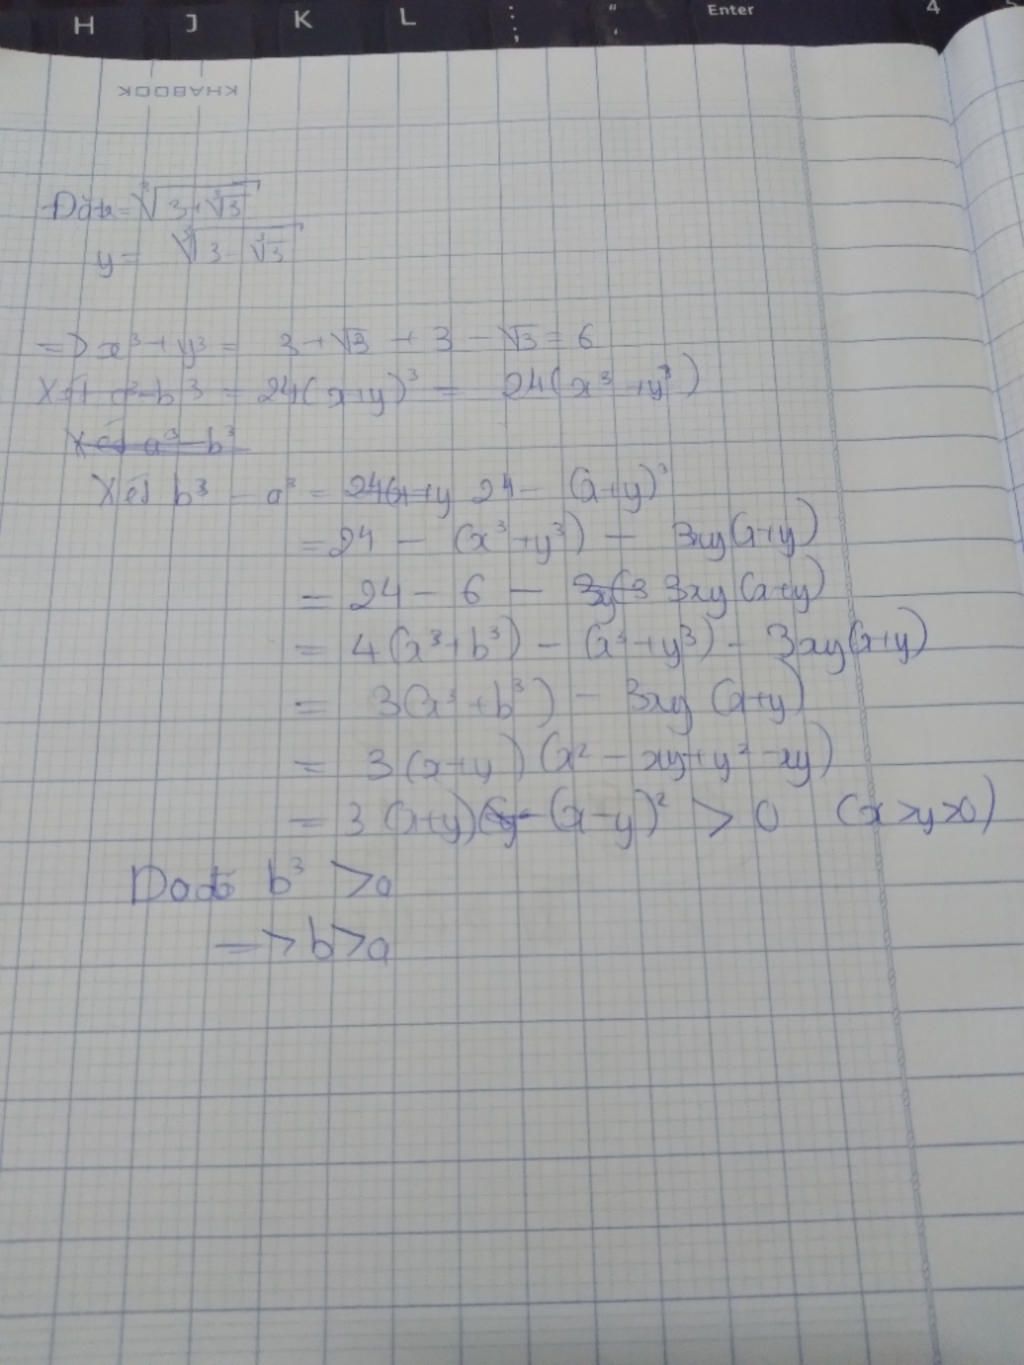 H J K L ; : " ' Enter 4
KHABOOK
Đặt x = ∛(3+∛3)
y = ∛(3-∛3)
=> x³ + y³ = 3 + √3 + 3 - √3 = 6
Xét a³-b³ = 24(x+y)³ = 24(x³+y³)
Xét a³ - b³
Xét b³ - a³ = 24(x+y 24 - (x+y)³
= 24 - (x³+y³) - 3xy(x+y)
= 24 - 6 - 3xy(3 3xy(x+y)
= 4(x³+b³) - (x³+y³) - 3xy(x+y)
= 3(x³+b³) - 3xy(x+y)
= 3(x+y)(x² - xy+y² -xy)
= 3(x+y)(x-y)² > 0 (x>y>0)
Do đó b³ > a
=> b>a